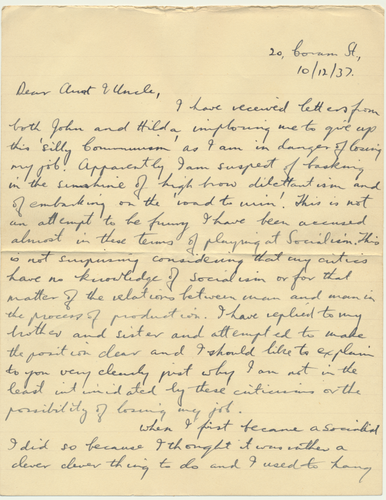 20, Coram St,
10/12/37.
Dear Aunt & Uncle,
I have received letters from
both John and Hilda, imploring me to give up
this 'silly Communism' as I am in danger of losing
my job! Apparently I am suspect of basking
in the sunshine of high brow dilettantism and
of embarking on the 'road to ruin'. This is not
an attempt to be funny I have been accused
almost in these terms of playing at Socialism. This
is not surprising considering that my critics
have no knowledge of socialism or for that
matter of the relations between man and man in
the process of production. I have replied to my
brother and sister and attempted to make
the position clear and I should like to explain
to you very clearly just why I am not in the
least intimidated by these criticisms or the
possibility of losing my job.
When I first became a Socialist
I did so because I thought it was rather a
clever clever thing to do and I used to hang